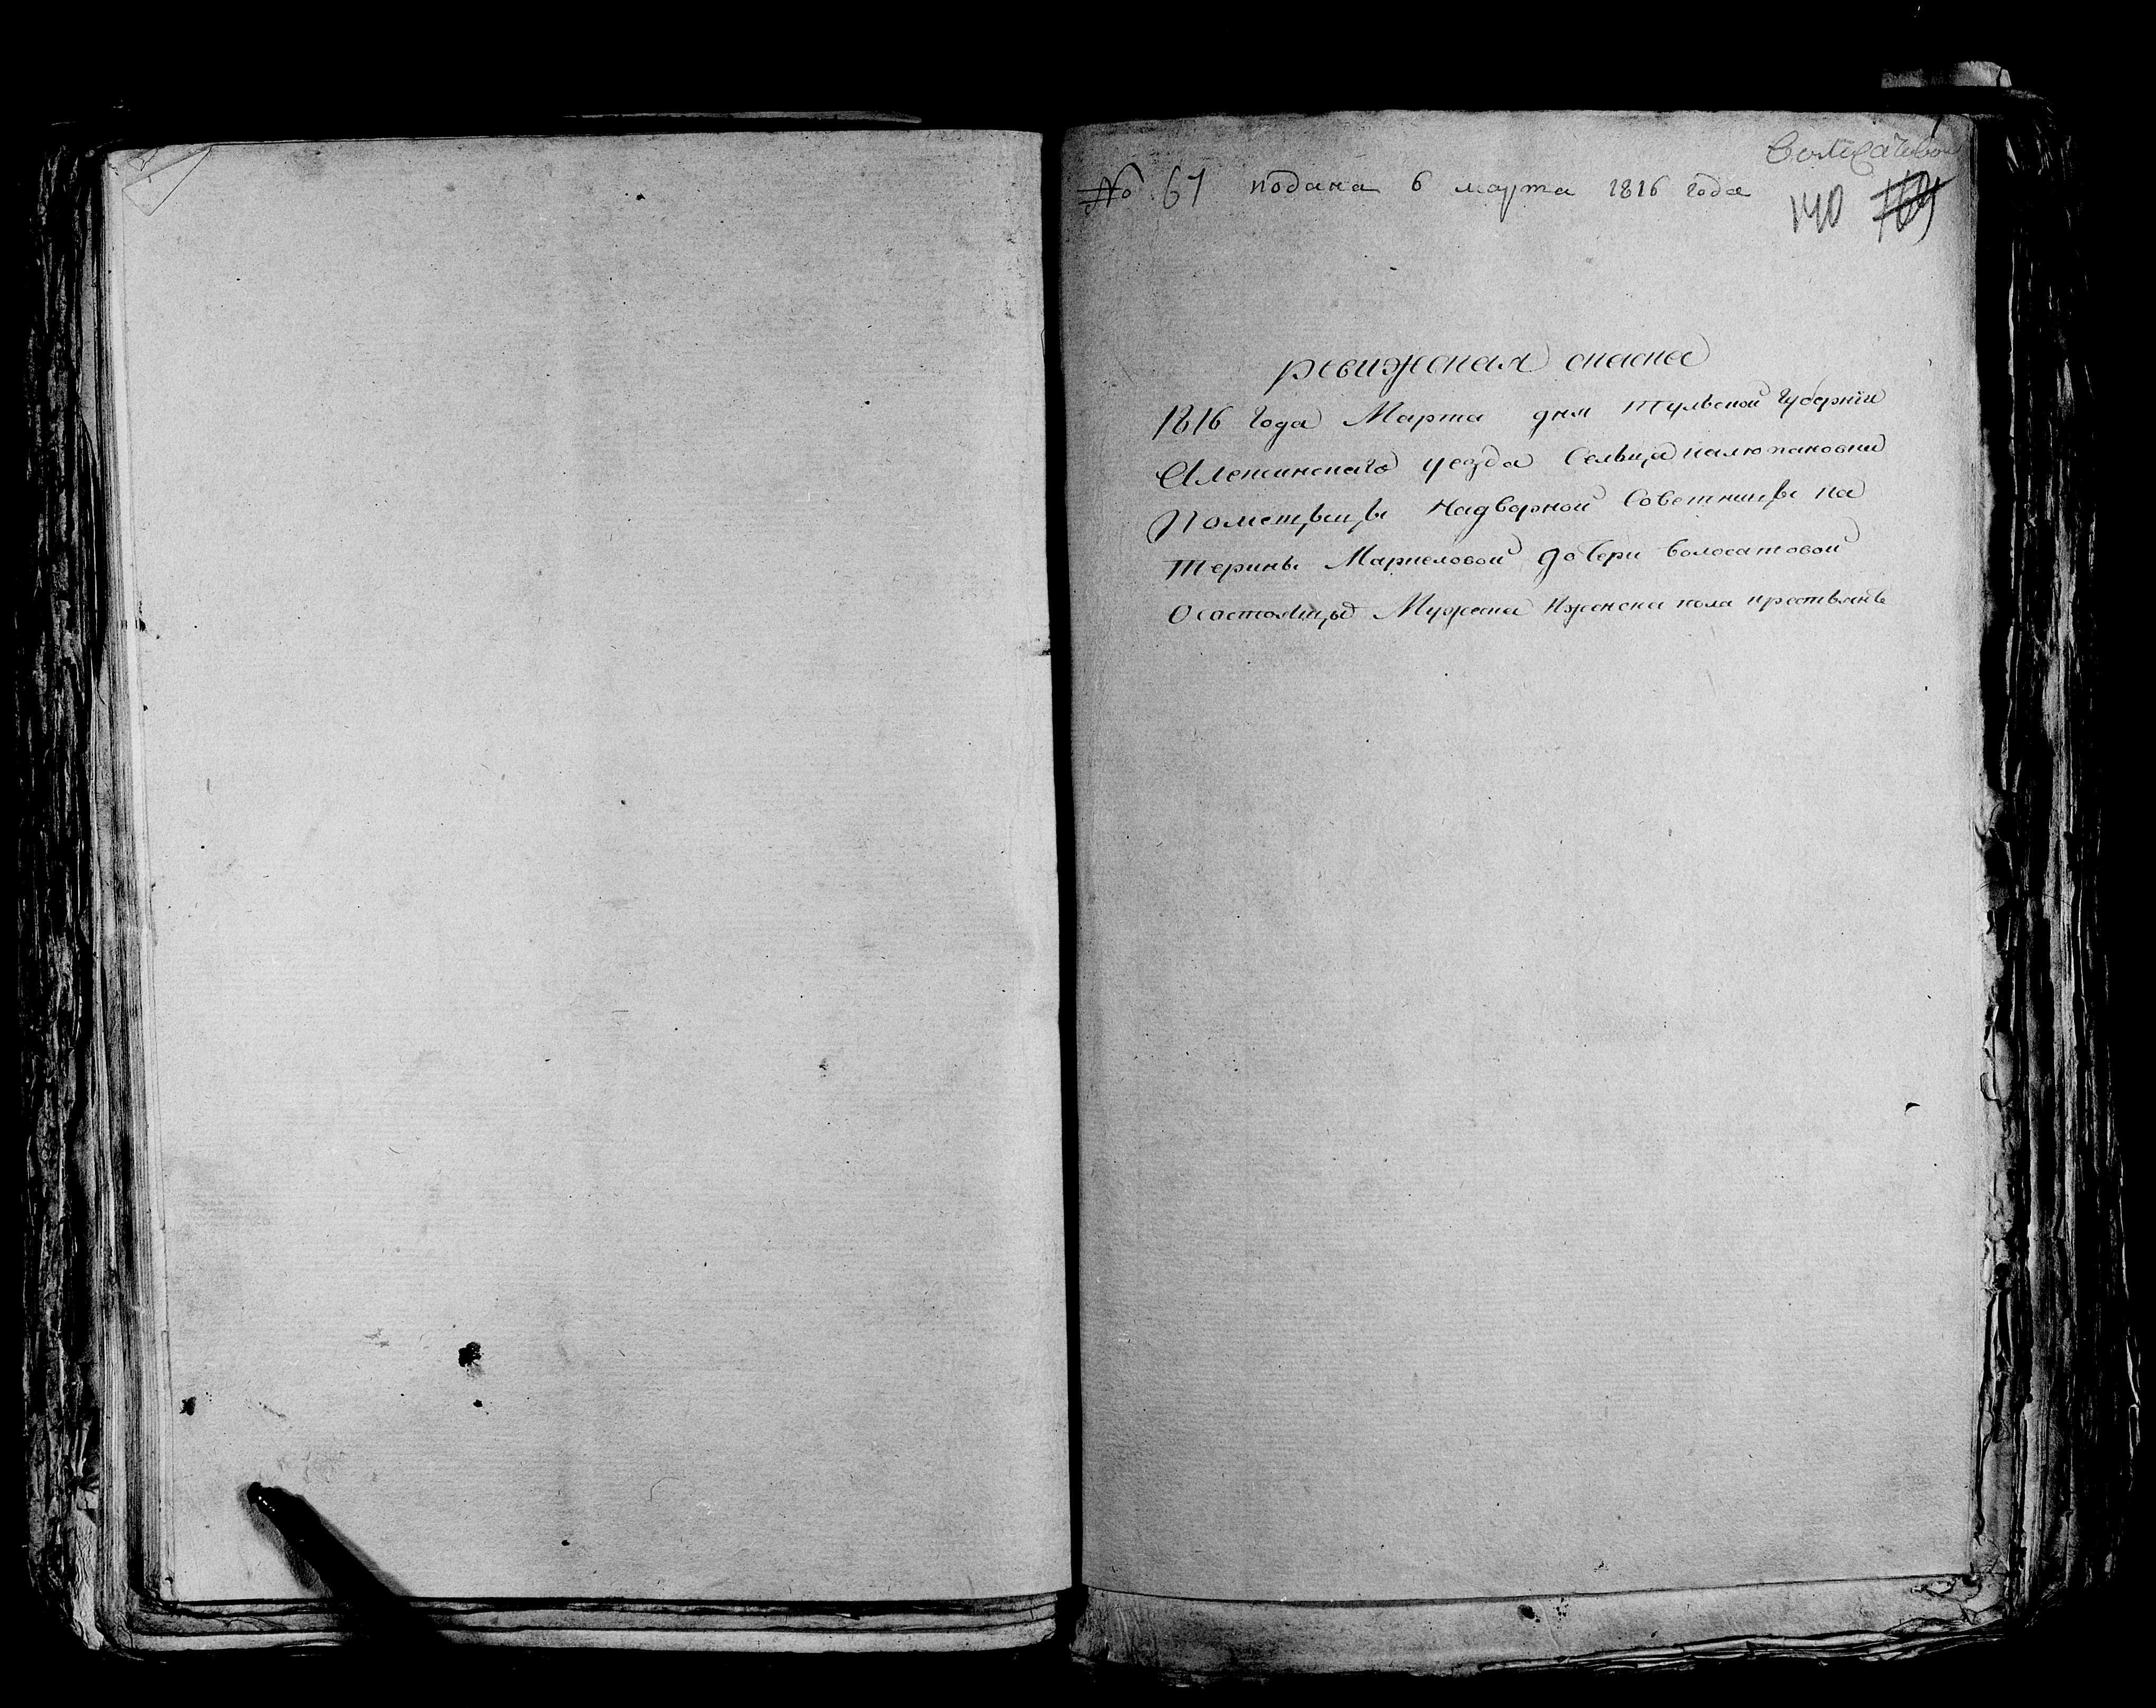 № 67 подана 6 марта 1816 года
140 169
ревижская скаска
1816 года Марта дня Тульской губернїи
Алексинскаго уезда Сельца калюпановки
Помещицы Надворной Советницы ка
терины Маркеловой дочери волосатовой
О состоящ Мужеска Иженска пола крестьянъ